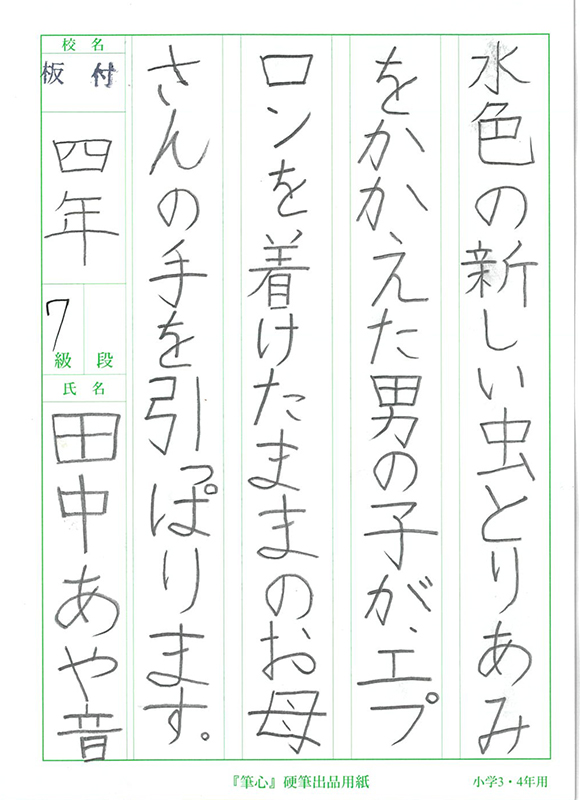 水色の新しい虫とりあみ
をかかえた男の子が、エプ
ロンを着けたままのお母
さんの手を引っぱります。
校名
板付
四年
7
級段
氏名
田中あや音
『筆心』硬筆出品用紙
小学3・4年用